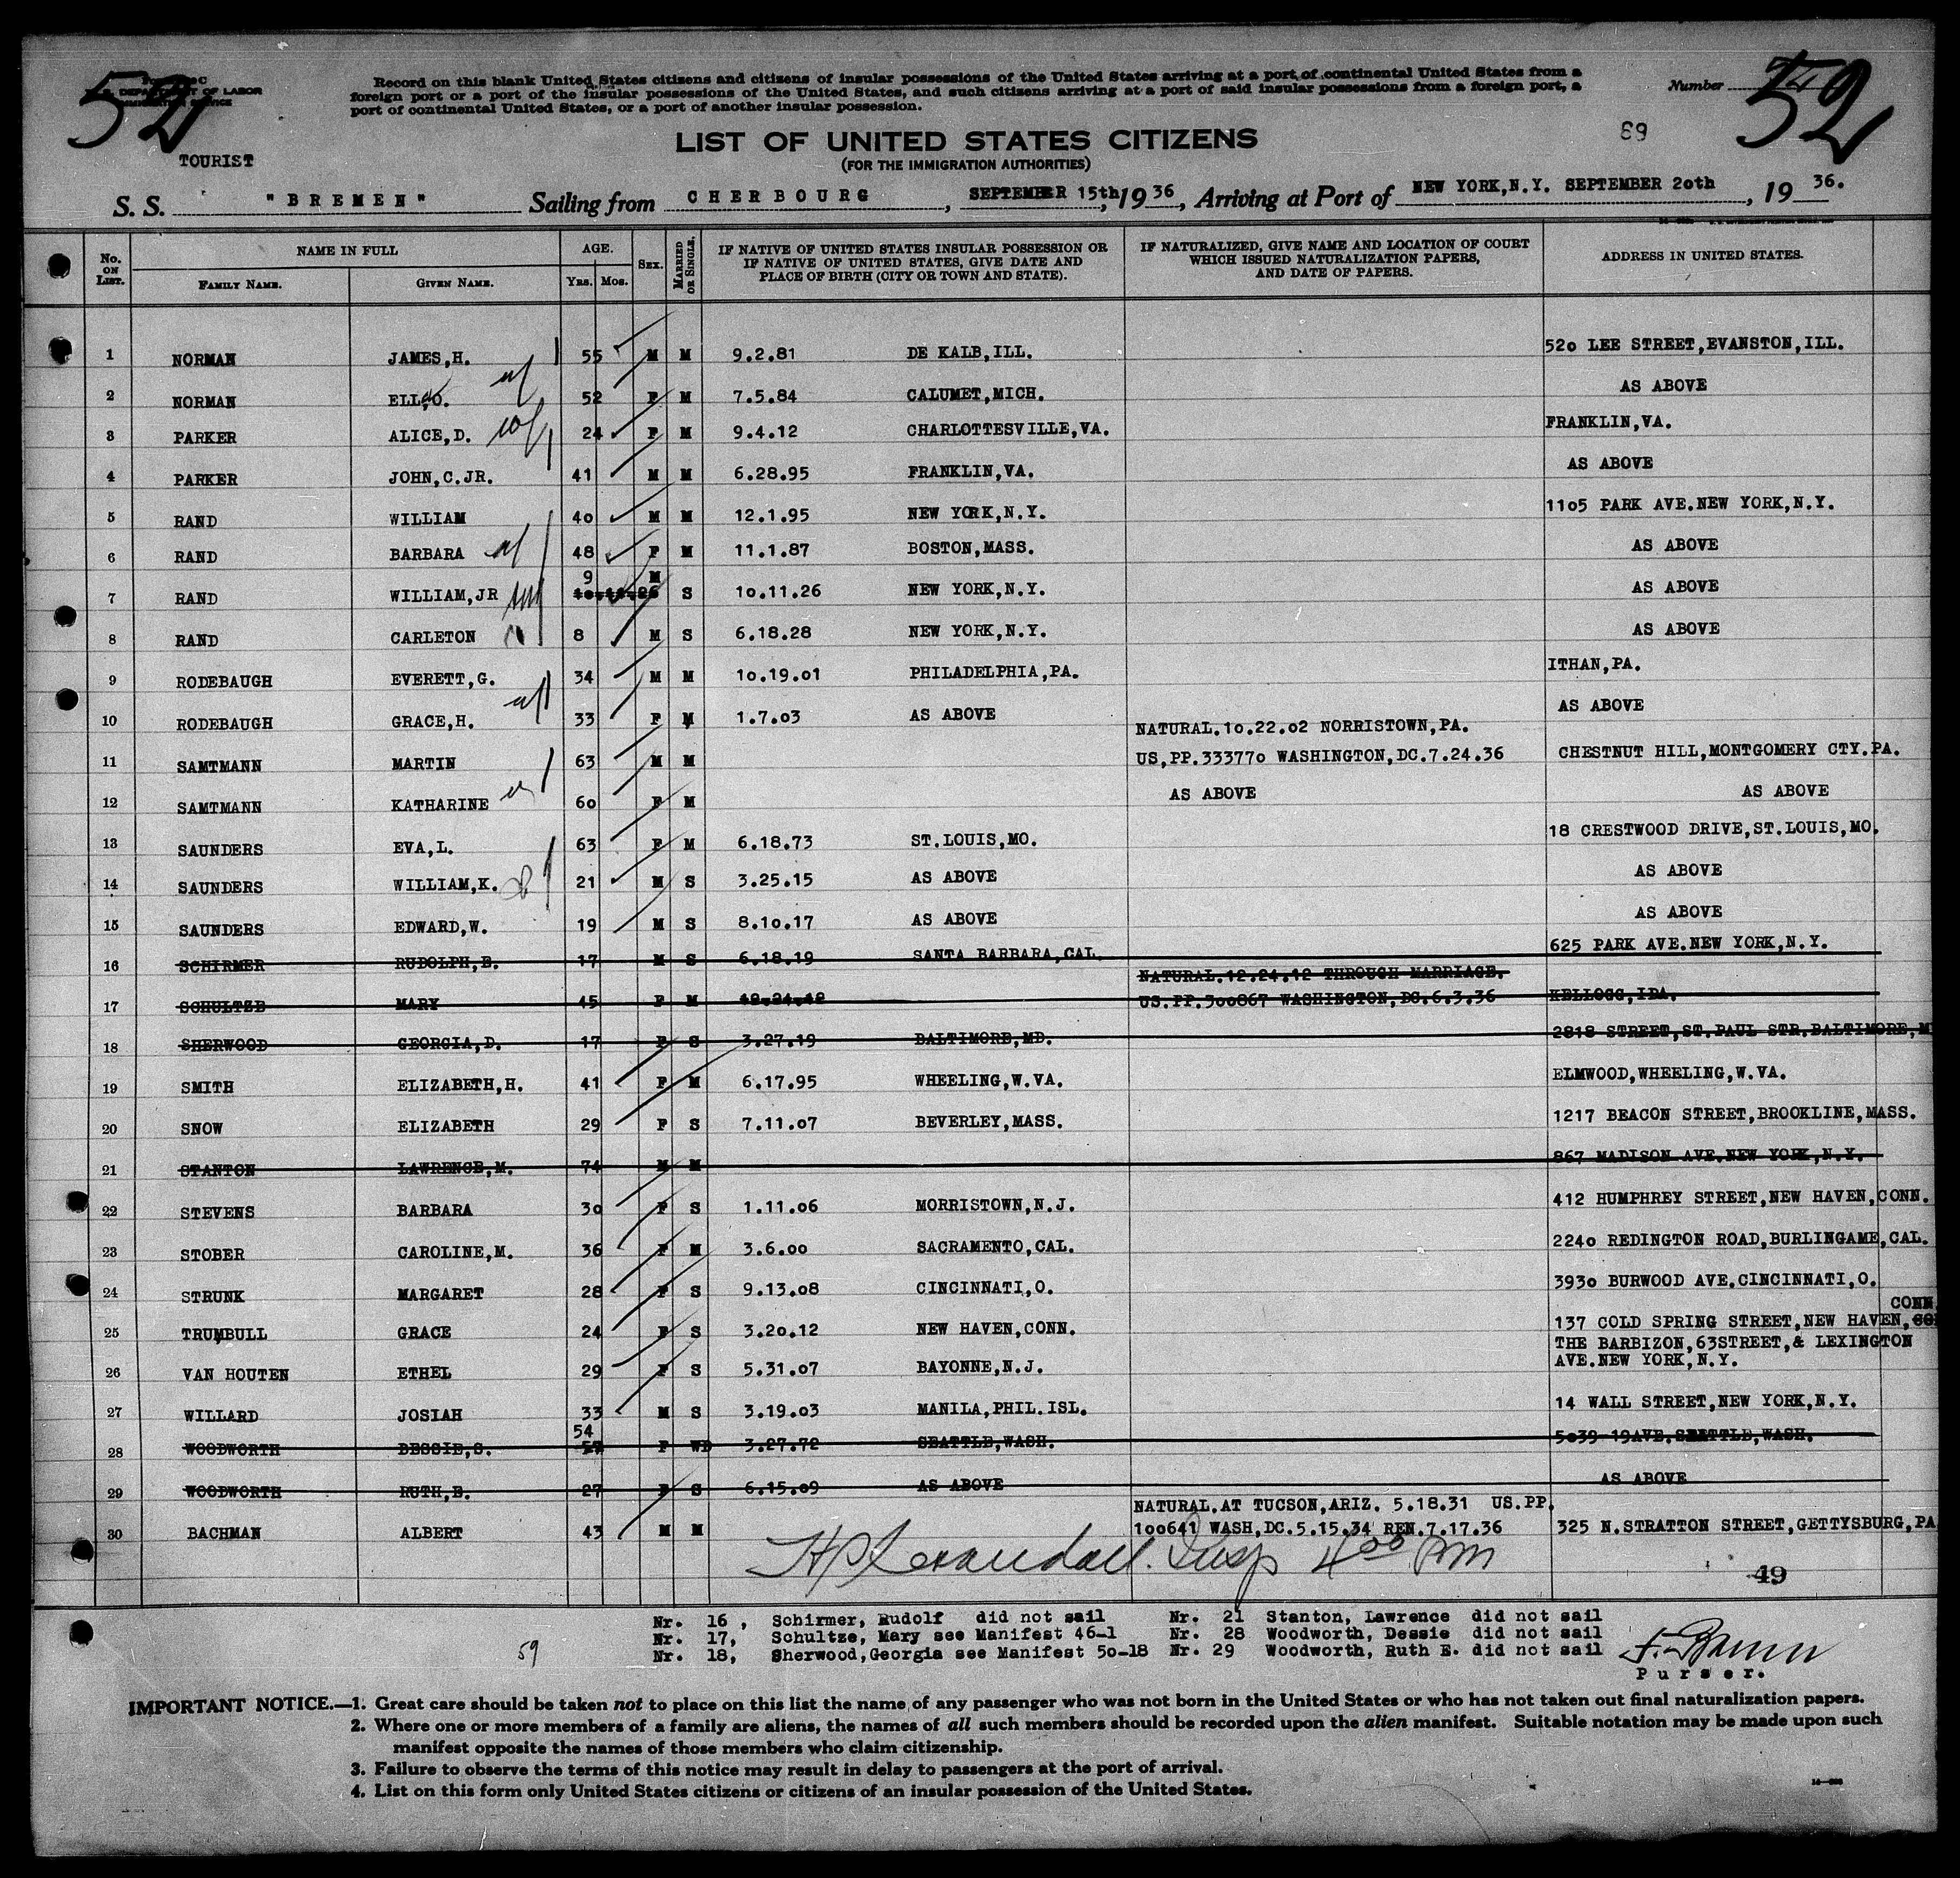 52
U. S. DEPARTMENT OF LABOR
IMMIGRATION SERVICE
TOURIST
Record on this blank United States citizens and citizens of insular possessions of the United States arriving at a port of continental United States from a
foreign port or a port of the insular possessions of the United States, and such citizens arriving at a port of said insular possessions from a foreign port, a
port of continental United States, or a port of another insular possession.
Number
52
69
LIST OF UNITED STATES CITIZENS
(FOR THE IMMIGRATION AUTHORITIES)
S. S. "BREMEN" Sailing from CHERBOURG, SEPTEMBER 15th, 1936, Arriving at Port of NEW YORK,N.Y. SEPTEMBER 20th, 1936.
No. ON LIST. NAME IN FULL FAMILY NAME. GIVEN NAME. AGE. YRS. MOS. SEX. MARRIED OR SINGLE. IF NATIVE OF UNITED STATES INSULAR POSSESSION OR IF NATIVE OF UNITED STATES, GIVE DATE AND PLACE OF BIRTH (CITY OR TOWN AND STATE). IF NATURALIZED, GIVE NAME AND LOCATION OF COURT WHICH ISSUED NATURALIZATION PAPERS, AND DATE OF PAPERS. ADDRESS IN UNITED STATES.
1 NORMAN JAMES,H. 55 M M 9.2.81 DE KALB,ILL. 520 LEE STREET,EVANSTON,ILL.
2 NORMAN 52 F M 7.5.84 CALUMET,MICH. AS ABOVE
3 PARKER ALICE,D. 24 F M 9.4.12 CHARLOTTESVILLE,VA. FRANKLIN,VA.
4 PARKER JOHN,C.JR. 41 M M 6.28.95 FRANKLIN,VA. AS ABOVE
5 RAND WILLIAM 40 M M 12.1.95 NEW YORK,N.Y. 1105 PARK AVE.NEW YORK,N.Y.
6 RAND BARBARA 48 F M 11.1.87 BOSTON,MASS. AS ABOVE
7 RAND WILLIAM,JR 9 M S 10.11.26 NEW YORK,N.Y. AS ABOVE
8 RAND CARLETON 8 M S 6.18.28 NEW YORK,N.Y. AS ABOVE
9 RODEBAUGH EVERETT,G. 34 M M 10.19.01 PHILADELPHIA,PA. ITHAN,PA.
10 RODEBAUGH GRACE,H. 33 F M 1.7.03 AS ABOVE AS ABOVE
NATURAL.10.22.02 NORRISTOWN,PA.
11 SAMTMANN MARTIN 63 M M US,PP.333770 WASHINGTON,DC.7.24.36 CHESTNUT HILL,MONTGOMERY CTY.PA.
12 SAMTMANN KATHARINE 60 F M AS ABOVE AS ABOVE
13 SAUNDERS EVA,L. 63 F M 6.18.73 ST.LOUIS,MO. 18 CRESTWOOD DRIVE,ST.LOUIS,MO.
14 SAUNDERS WILLIAM,K. 21 M S 3.25.15 AS ABOVE AS ABOVE
15 SAUNDERS EDWARD,W. 19 M S 8.10.17 AS ABOVE AS ABOVE
16 SCHIRMER RUDOLPH,E. 17 M S 6.18.19 SANTA BARBARA,CAL. 625 PARK AVE.NEW YORK,N.Y.
NATURAL.12.24.12 THROUGH MARRIAGE.
17 SCHULTZE MARY 45 F M 12.24.12 US.PP.300867 WASHINGTON,DC.6.3.36 KELLOGG,IDA.
18 SHERWOOD GEORGIA,D. 17 F S 3.27.19 BALTIMORE,MD. 2818 STREET,ST.PAUL STR.BALTIMORE,M
19 SMITH ELIZABETH,H. 41 F M 6.17.95 WHEELING,W.VA. ELMWOOD,WHEELING,W.VA.
20 SNOW ELIZABETH 29 F S 7.11.07 BEVERLEY,MASS. 1217 BEACON STREET,BROOKLINE,MASS.
21 STANTON LAWRENCE,M. 74 M M 867 MADISON AVE.NEW YORK,N.Y.
22 STEVENS BARBARA 30 F S 1.11.06 MORRISTOWN,N.J. 412 HUMPHREY STREET,NEW HAVEN,CONN.
23 STOBER CAROLINE,M. 36 F M 3.6.00 SACRAMENTO,CAL. 2240 REDINGTON ROAD,BURLINGAME,CAL.
24 STRUNK MARGARET 28 F S 9.13.08 CINCINNATI,O. 3930 BURWOOD AVE.CINCINNATI,O.
CONN
25 TRUMBULL GRACE 24 F S 3.20.12 NEW HAVEN,CONN. 137 COLD SPRING STREET,NEW HAVEN,
THE BARBIZON,63STREET,& LEXINGTON
26 VAN HOUTEN ETHEL 29 F S 5.31.07 BAYONNE,N.J. AVE.NEW YORK,N.Y.
27 WILLARD JOSIAH 33 M S 3.19.03 MANILA,PHIL.ISL. 14 WALL STREET,NEW YORK,N.Y.
28 WOODWORTH DESSIE,S. 54 F WD 3.27.72 SEATTLE,WASH. 5039-19AVE.SEATTLE,WASH.
29 WOODWORTH RUTH,E. 27 F S 6.15.09 AS ABOVE AS ABOVE
NATURAL.AT TUCSON,ARIZ. 5.18.31 US.PP.
30 BACHMAN ALBERT 43 M M 100641 WASH,DC.5.15.34 REN.7.17.36 325 N.STRATTON STREET,GETTYSBURG,PA
Insp 4 00 PM
49
Nr. 16, Schirmer, Rudolf did not sail Nr. 21 Stanton, Lawrence did not sail
Nr. 17, Schultze, Mary see Manifest 46-1 Nr. 28 Woodworth, Dessie did not sail
Nr. 18, Sherwood,Georgia see Manifest 50-18 Nr. 29 Woodworth, Ruth E. did not sail
59
Purser.
IMPORTANT NOTICE.—1. Great care should be taken not to place on this list the name of any passenger who was not born in the United States or who has not taken out final naturalization papers.
2. Where one or more members of a family are aliens, the names of all such members should be recorded upon the alien manifest. Suitable notation may be made upon such
manifest opposite the names of those members who claim citizenship.
3. Failure to observe the terms of this notice may result in delay to passengers at the port of arrival.
4. List on this form only United States citizens or citizens of an insular possession of the United States.